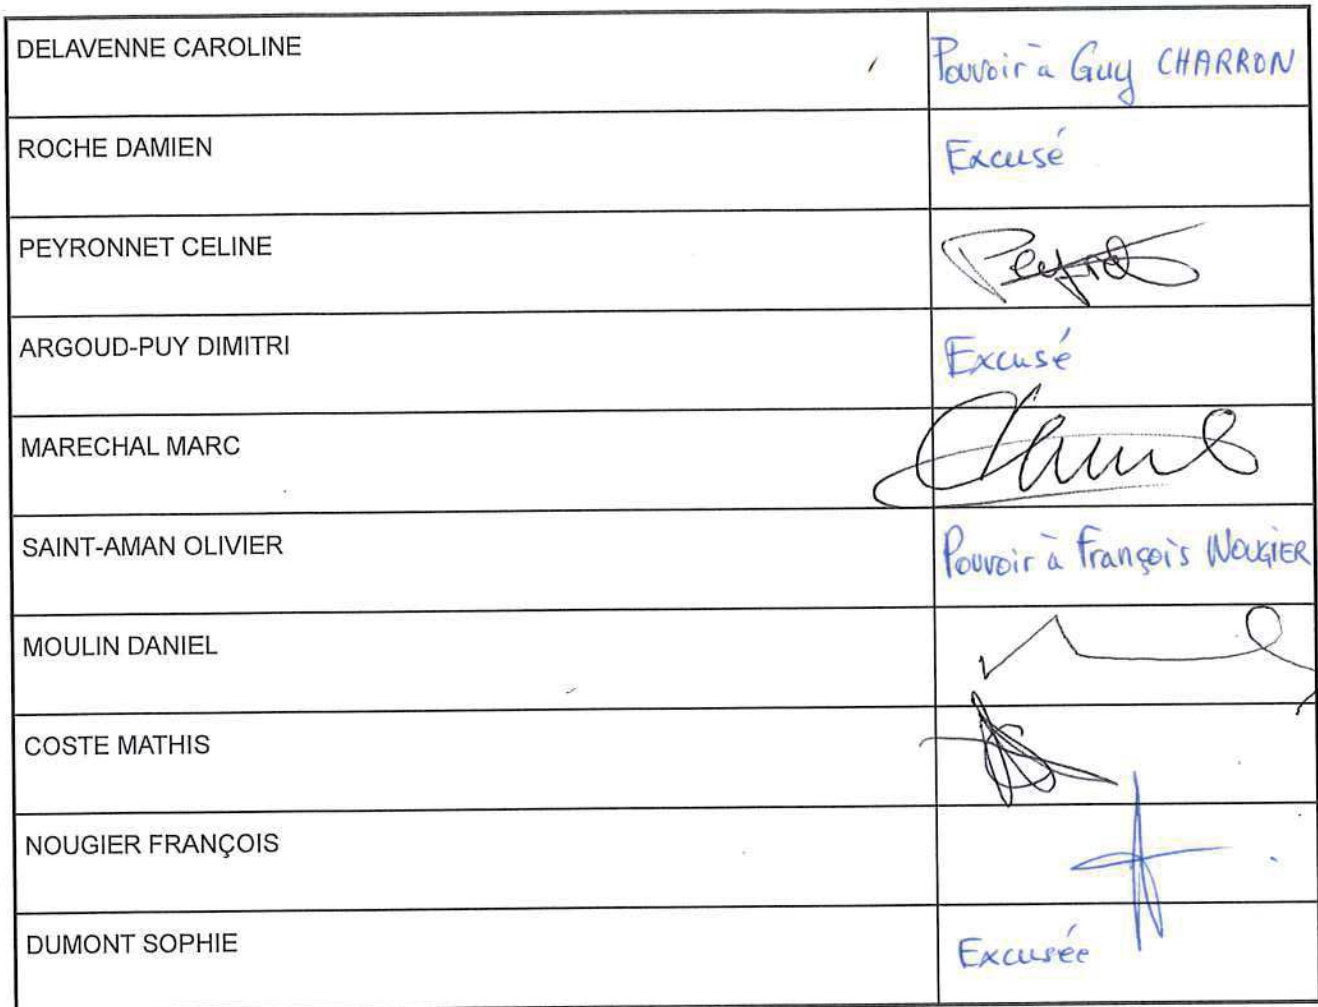 DELAVENNE CAROLINE Pouvoir à Guy CHARRON
ROCHE DAMIEN Excusé
PEYRONNET CELINE
ARGOUD-PUY DIMITRI Excusé
MARECHAL MARC
SAINT-AMAN OLIVIER Pouvoir à François NOUGIER
MOULIN DANIEL
COSTE MATHIS
NOUGIER FRANÇOIS
DUMONT SOPHIE Excusée